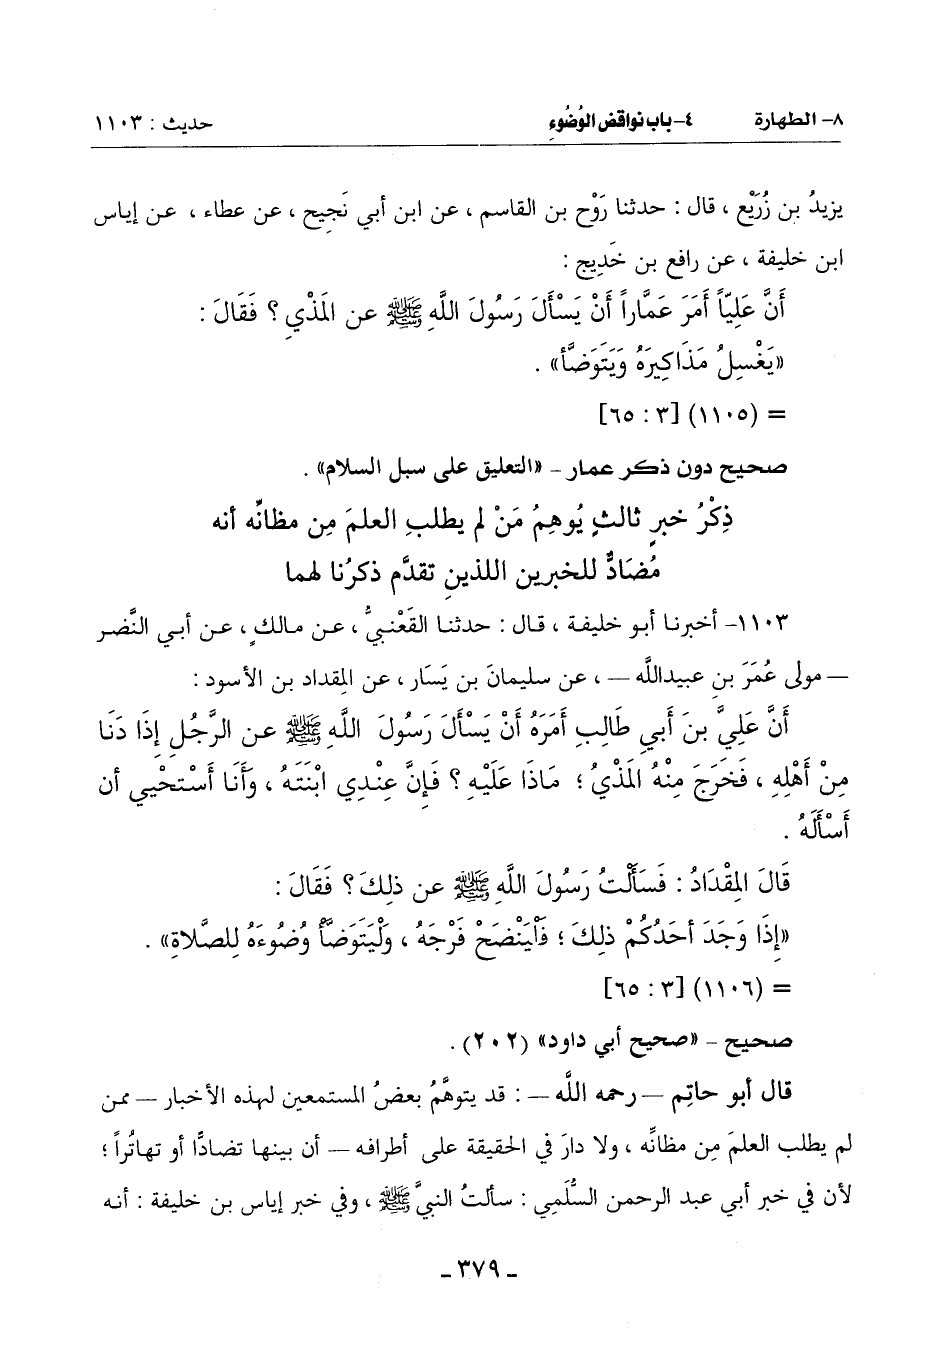 ٨- الطهارة ٤- باب نواقض الوُضُوءِ حديث : ١١٠٣
يزيدُ بن زُرَيْع ، قال : حدثنا رَوْح بن القاسم ، عن ابن أبي نَجيح ، عن عطاء ، عن إياس
ابن خليفة ، عن رافع بن خَدِيج :
أَنَّ عَلِيّاً أَمَرَ عَمَّاراً أَنْ يَسْأَلَ رَسُولَ اللَّهِ ﷺ عن المَذْيِ ؟ فَقَالَ :
«يَغْسِلُ مَذَاكِيرَهُ وَيَتَوَضَّأ» .
= (١١٠٥) [٣ : ٦٥]
صحيح دون ذكر عمار – «التعليق على سبل السلام» .
ذِكْرُ خبرٍ ثالثٍ يُوهِمُ مَنْ لم يطلبِ العلمَ مِن مظانِّه أنه
مُضَادٌّ للخبرين اللذينِ تقدَّم ذكرُنا لهما
١١٠٣- أخبرنا أبو خليفة ، قال : حدثنا القَعْنبيُّ ، عن مالكٍ ، عن أبي النَّضر
— مولى عُمَرَ بنِ عبيدالله — ، عن سليمانَ بن يَسَار ، عن المِقداد بن الأسود :
أَنَّ عَلِيَّ بنَ أبي طَالِبٍ أَمَرَهُ أَنْ يَسْأَلَ رَسُولَ اللَّهِ ﷺ عن الرَّجُلِ إِذَا دَنَا
مِنْ أَهْلِهِ ، فَخَرَجَ مِنْهُ المَذْيُ ؛ مَاذَا عَلَيْهِ ؟ فَإِنَّ عِنْدِي ابْنَتَهُ ، وَأَنَا أَسْتَحْيي أن
أَسْأَلَهُ .
قَالَ المِقْدَادُ : فَسَأَلْتُ رَسُولَ اللَّهِ ﷺ عن ذلِكَ ؟ فَقَالَ :
«إِذَا وَجَدَ أحَدُكُمْ ذلِكَ ؛ فَلْيَنْضَحْ فَرْجَهُ ، ولْيَتَوَضَّأْ وُضُوءَهُ لِلصَّلاةِ» .
= (١١٠٦) [٣ : ٦٥]
صحيح – «صحيح أبي داود» (٢٠٢) .
قال أبو حاتِم — رحمه اللَّه — : قد يتوهَّمُ بعضُ المستمعين لهذه الأخبار — ممن
لم يطلب العلمَ مِن مظانِّه ، ولا دارَ في الحقيقة على أطرافه — أن بينها تضادًّا أو تهاتُراً ؛
لأن في خبر أبي عبد الرحمن السُّلَمِي : سألتُ النبيَّ ﷺ ، وفي خبر إياس بن خليفة : أنه
- ٣٧٩ -